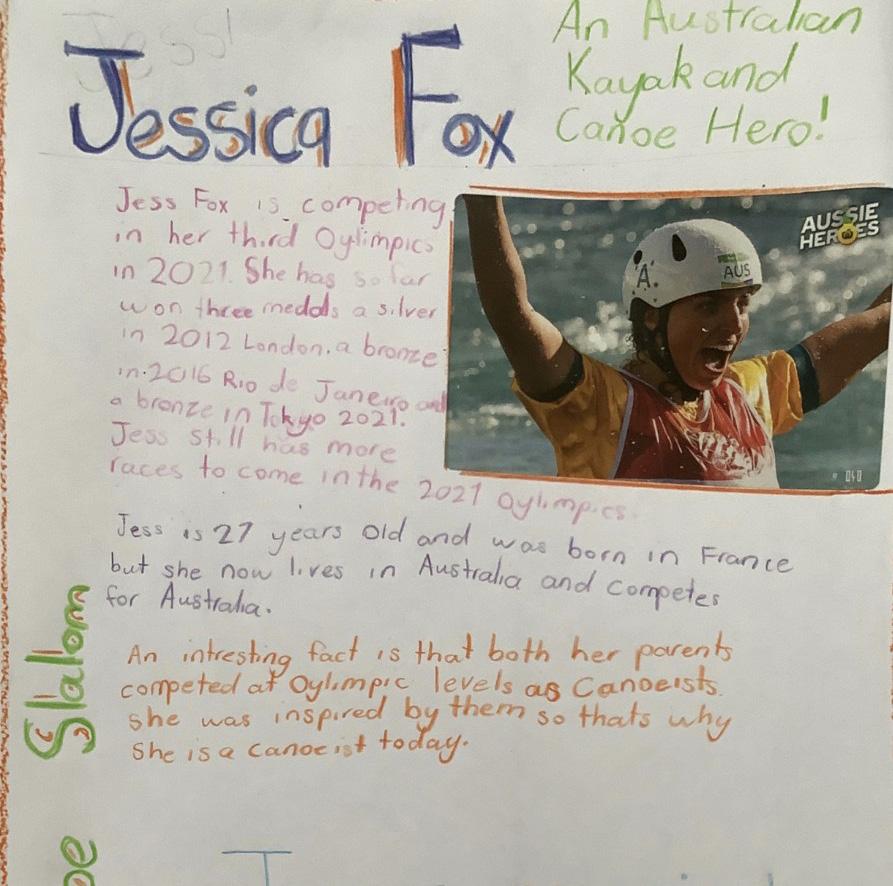 Jessica Fox
An Australian
Kayak and
Canoe Hero!
Jess Fox is competing
in her third Oylimpics
in 2021. She has so far
won three medals a silver
in 2012 London, a bronze
in 2016 Rio de Janeiro and
a bronze in Tokyo 2021.
Jess still has more
races to come in the 2021 Oylimpics.
AUSSIE
HEROES
A.
AUS
040
Jess is 27 years old and was born in France
but she now lives in Australia and competes
for Australia.
An intresting fact is that both her parents
competed at Oylimpic levels as Canoeists.
She was inspired by them so thats why
She is a canoeist today.
Slalom